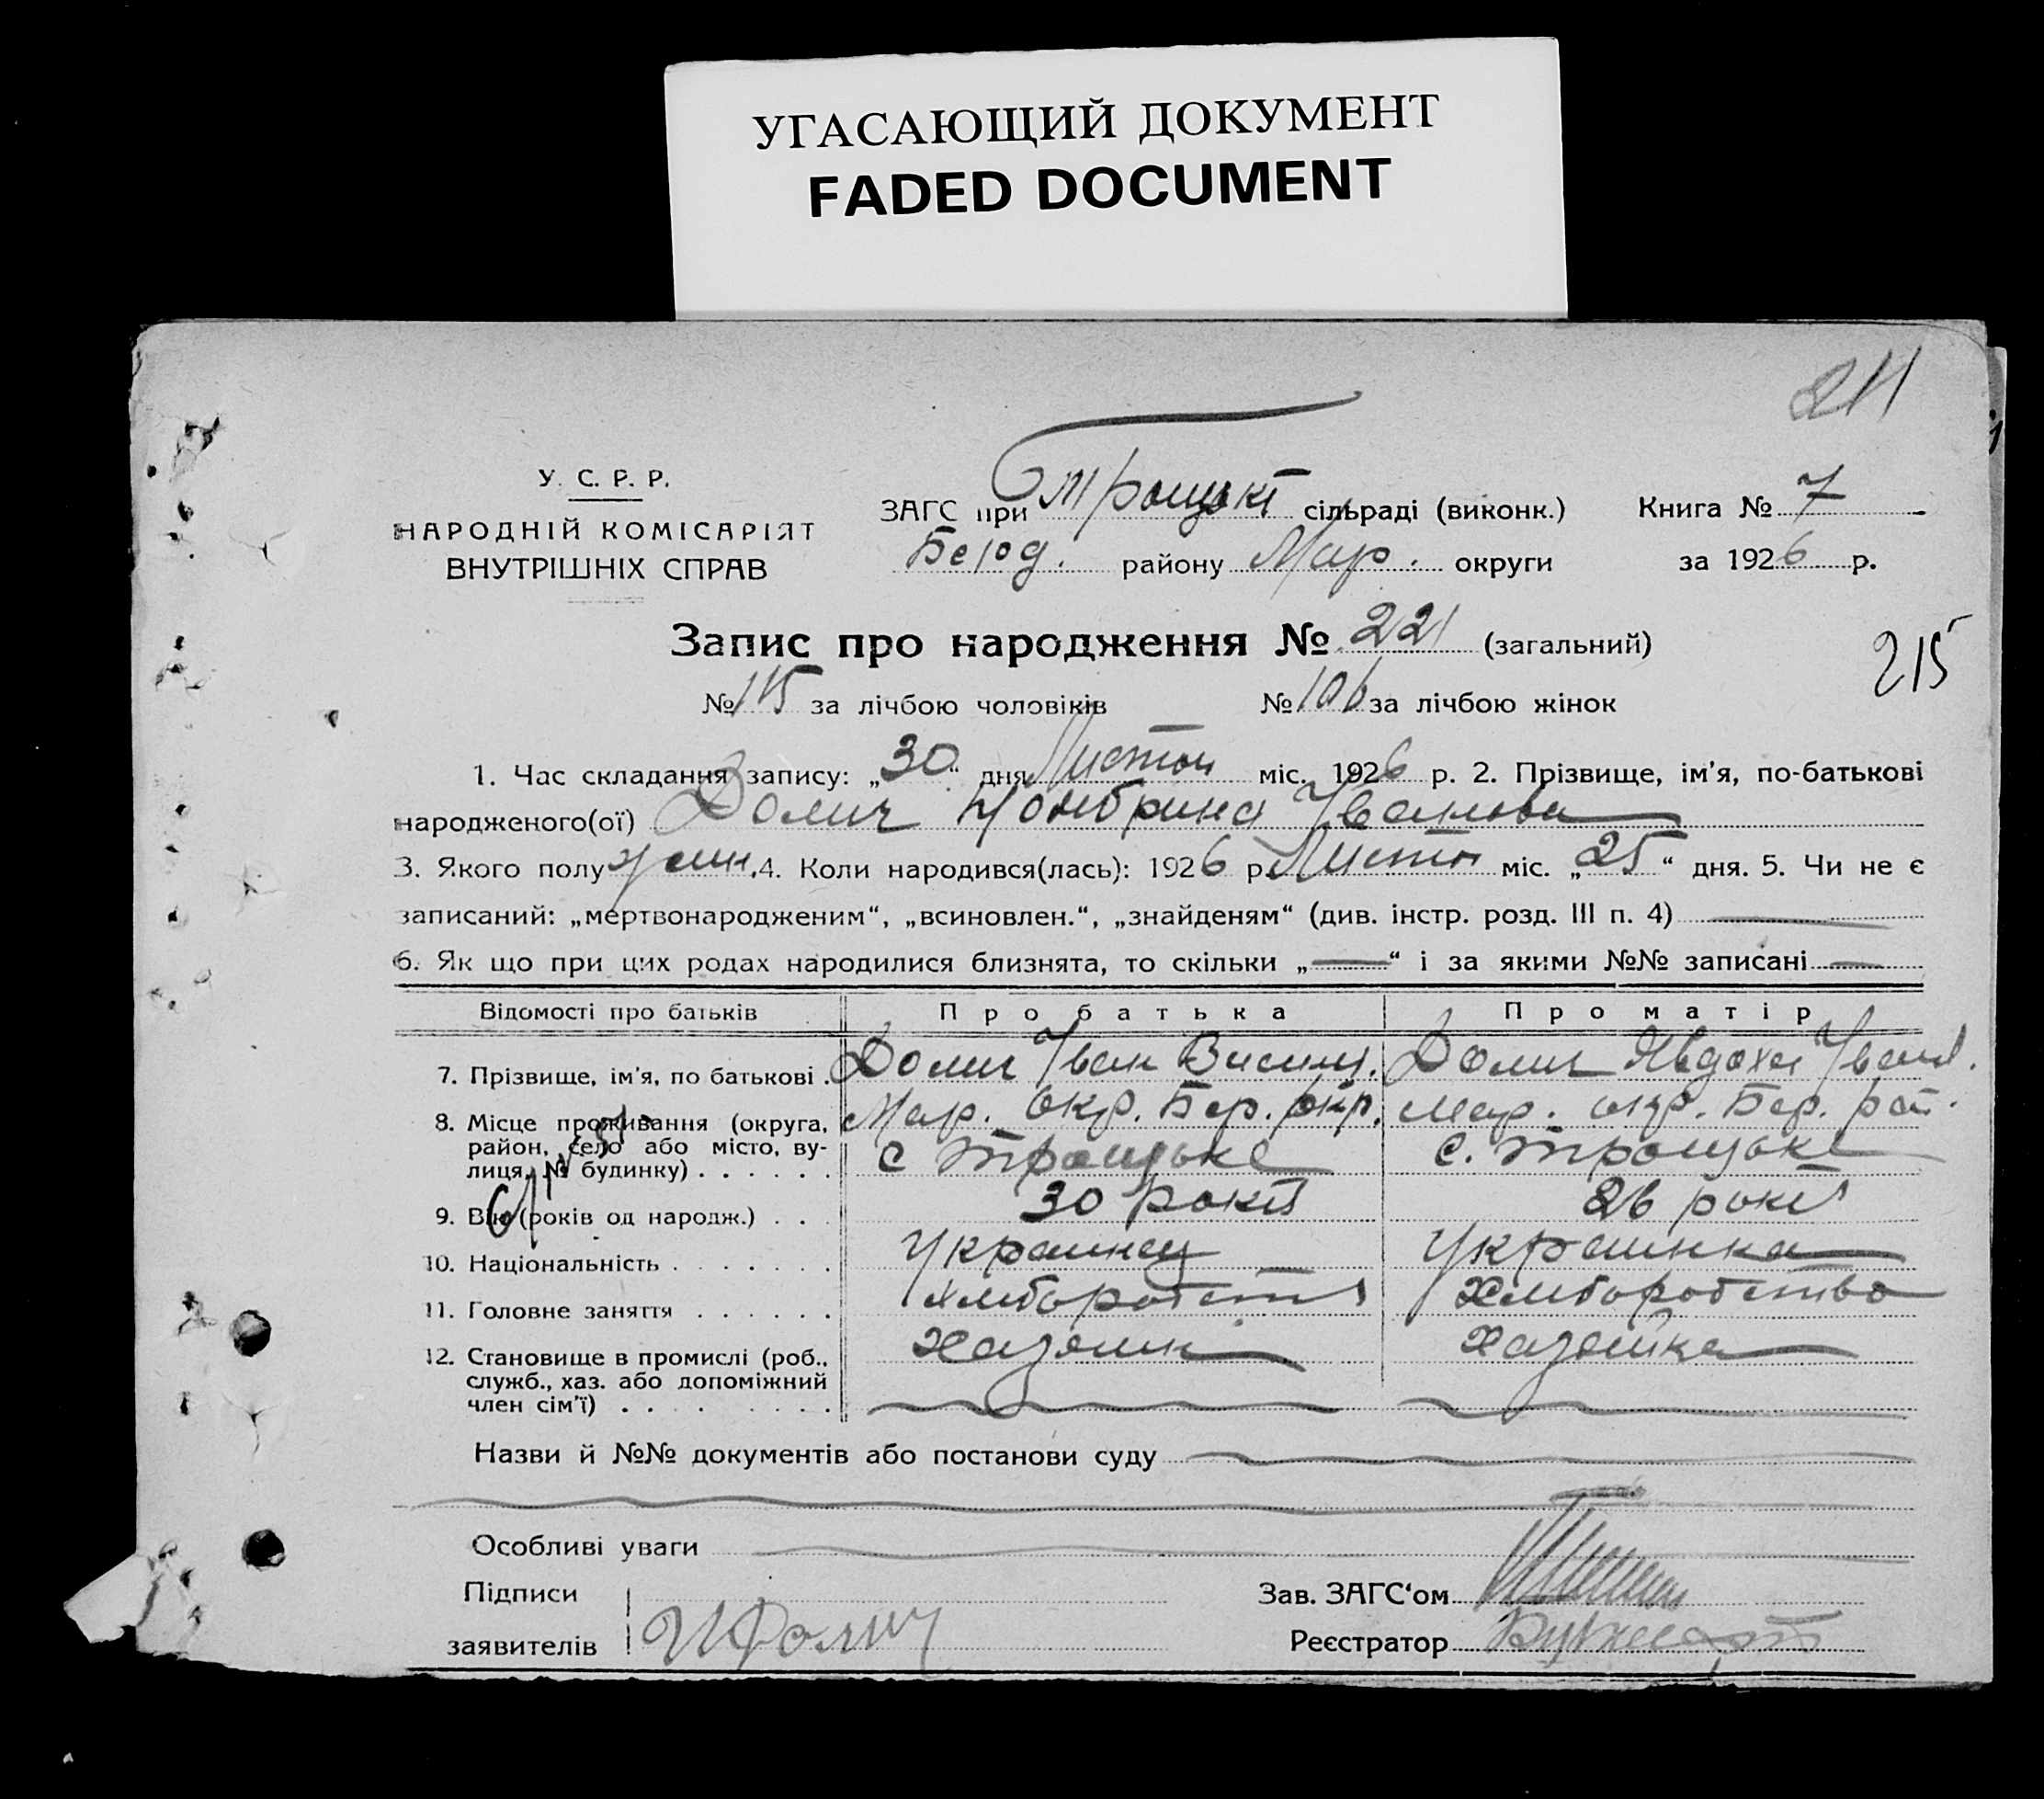 УГАСАЮЩИЙ ДОКУМЕНТ
FADED DOCUMENT
211
У. С. Р. Р.
НАРОДНІЙ КОМІСАРІЯТ
ВНУТРІШНІХ СПРАВ
ЗАГС при Троцькі сільраді (виконк.)
Книга № 7
району Мар. округи
за 1926 р.
Запис про народження № 221 (загальний)
215
№ 115 за лічбою чоловіків № 106 за лічбою жінок
1. Час складання запису: „30“ дня Листоп міс. 1926 р. 2. Прізвище, ім'я, по-батькові
народженого(ої) Долич Іванова
3. Якого полу жін. 4. Коли народився(лась): 1926 р. Листоп міс. „25“ дня. 5. Чи не є
записаний: „мертвонародженим“, „всиновлен.“, „знайденям“ (див. інстр. розд. III п. 4)
6. Як що при цих родах народилися близнята, то скільки „—“ і за якими №№ записані —
Відомості про батьків Про батька Про матір
7. Прізвище, ім'я, по батькові . Долич Іван Васил. Долич Явдоха Іван.
8. Місце проживання (округа, Мар. окр. Бер. окр. Мар. окр. Бер. рай.
район, село або місто, ву- с Троцьке с. Троцьке
лиця, № будинку) . . . . . .
9. Вік (років од народж.) . . . 30 років 26 років
10. Національність . . . . . . . Українець Українка
11. Головне заняття . . . . . . Хліборобств Хліборобство
12. Становище в промислі (роб., Хазяїн Хазяйка
служб., хаз. або допоміжний
член сім'ї) . . . . . . . .
Назви й №№ документів або постанови суду
Особливі уваги
Підписи
заявителів И Долич
Зав. ЗАГС‘ом
Реєстратор